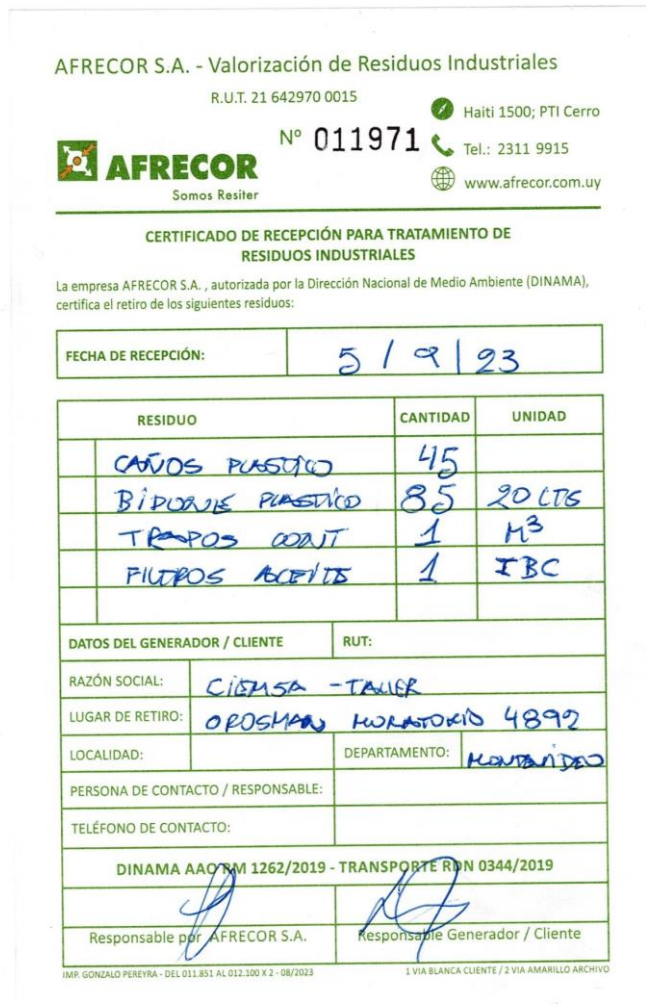 AFRECOR S.A. - Valorización de Residuos Industriales
R.U.T. 21 642970 0015
Haiti 1500; PTI Cerro
Nº 011971
Tel.: 2311 9915
AFRECOR
www.afrecor.com.uy
Somos Resiter
CERTIFICADO DE RECEPCIÓN PARA TRATAMIENTO DE
RESIDUOS INDUSTRIALES
La empresa AFRECOR S.A. , autorizada por la Dirección Nacional de Medio Ambiente (DINAMA),
certifica el retiro de los siguientes residuos:
FECHA DE RECEPCIÓN: 5 / 9 / 23
RESIDUO CANTIDAD UNIDAD
CAÑOS PLASTICO 45
BIDONES PLASTICO 85 20 LTS
TRAPOS CONT 1 M3
FILTROS ACEITE 1 IBC
DATOS DEL GENERADOR / CLIENTE RUT:
RAZÓN SOCIAL: CIEMSA - TALLER
LUGAR DE RETIRO: OROSMAN MORATORIO 4892
LOCALIDAD: DEPARTAMENTO: MONTEVIDEO
PERSONA DE CONTACTO / RESPONSABLE:
TELÉFONO DE CONTACTO:
DINAMA AAO RM 1262/2019 - TRANSPORTE RDN 0344/2019
Responsable por AFRECOR S.A. Responsable Generador / Cliente
IMP. GONZALO PEREYRA - DEL 011.851 AL 012.100 X 2 - 08/2023 1 VIA BLANCA CLIENTE / 2 VIA AMARILLO ARCHIVO